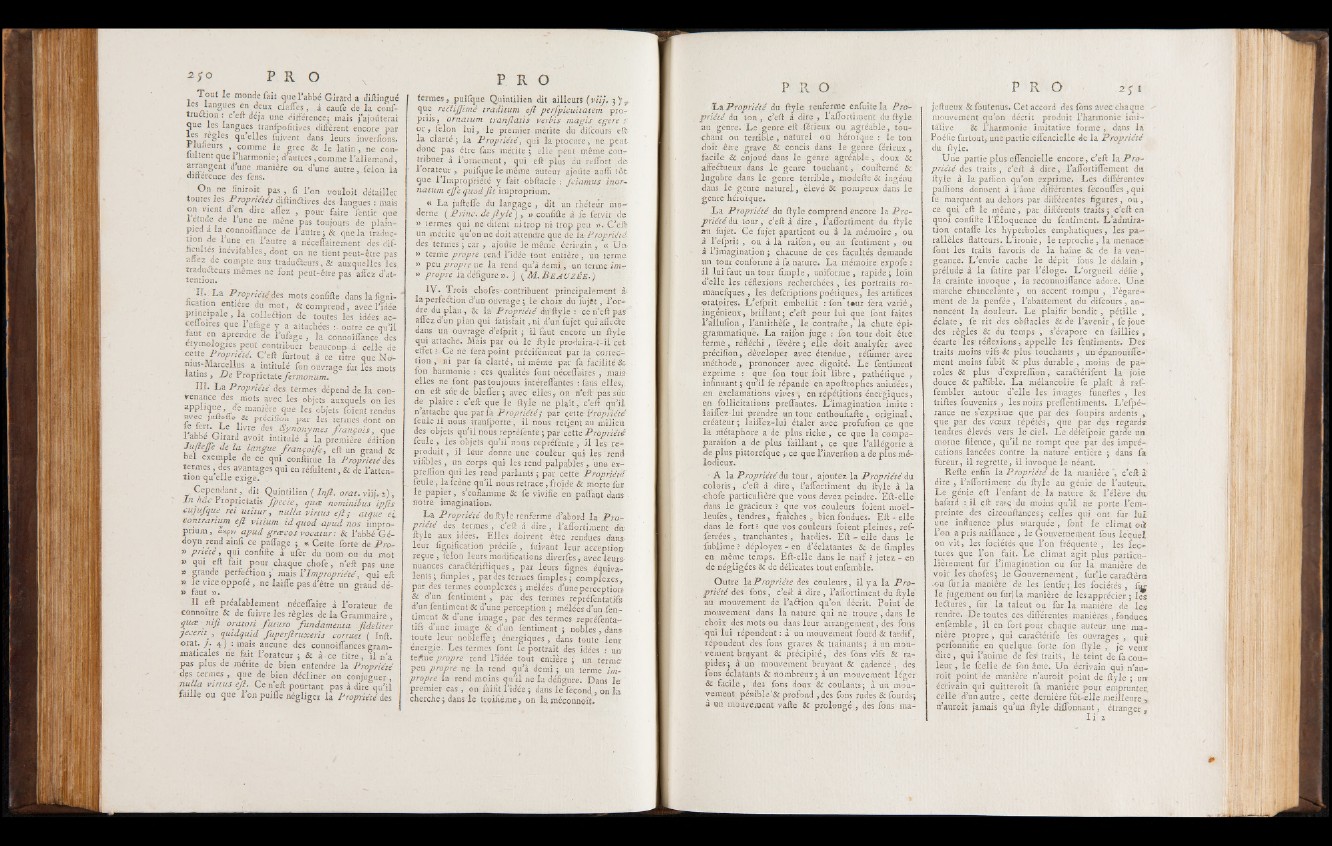 250 P R O
Tout le monde fait que l'abbé Girard a diſtingué
les langues en deux claſſes, à cauſe de la conſ-
truction : c'eſt déja une différence; mais j'ajouterai
que les langues tranſpoſitives diffèrent encore par
les règles qu'elles ſuivent dans leurs inverſions.
Pluſieurs, comme le grec & le latin, ne con-
ſultent que l'harmonie; d'autres, comme l'allemand,
arrangent d'une manière ou d'une autre, ſelon la
différence des ſens.
On ne finiroit pas, ſi l'on vouloit détailler
toutes les Propriétés diſtinctives des langues : mais
on vient d'en dire aſſez, pour faire ſentir que
l'étude de l'une ne mène pas toujours de plain-
pied à la connoiſſance de l'autre; & que la traduc-
tion de l'une en l'autre a néceſſairement des dif-
ficultés inévitables, dont on ne tient peut-être pas
aſſez de compte aux traducteurs, & auxquelles les
traducteurs mêmes ne font peut-être pas aſſez d'at-
tention.
II. La Propriété des mots conſiſte dans la ſigni-
fication entière du mot, & comprend, avec l'idée
principale, la collection de toutes les idées ac-
ceſſoires que l'uſage y a attachées : outre ce qu'il
faut en aprendre de l'uſage, la connoiſſance des
étymologies peut contribuer beaucoup à celle de
cette Propriété. C'eſt ſurtout à ce titre que No-
nius-Marcellus a intitulé ſon ouvrage ſur les mots
latins, De Proprietate ſermonum.
III. La Propriété des termes dépend de la con-
venance des mots avec les objets auxquels on les
applique, de manière que les objets ſoient rendus
avec juſteſſe & préciſion par les termes dont on
ſe ſert. Le livre des Synonymes françois, que
l'abbé Girard avoit intitulé à la première édition
Juſteſſe de la langue françoiſe, eſt un grand &
bel exemple de ce qui conſtitue la Propriété des
termes, des avantages qui en réſultent, & de l'atten-
tion qu'elle exige.
Cependant, dit Quintilien (Inſt. orat. viij. 2),
In hâc Proprietatis ſpecie, quæ nominibus ipſis
cujuſque rei utitur, nulla virtus eſt; atque ei
contrarium eſt vitium id quod apud nos impro-
prium, ἄκυρον apud græcos vocatur : & l'abbé Gé-
doyn rend ainſi ce paſſage; « Cette ſorte de Pro-
» priété, qui conſiſte à uſer du nom ou du mot
» qui eſt fait pour chaque choſe, n'eſt pas une
» grande perfection ; mais l'Impropriété, qui eſt
» le vice oppoſé, ne laiſſe pas d'être un grand dé-
» faut ».
Il eſt préalablement néceſſaire à l'orateur de
connoître & de ſuivre les règles de la Grammaire,
quæ niſi oratori futuro fundamenta fideliter
jecerit, quidquid ſuperſtruxeris corruet ( Inſt.
orat. j. 4 ) : mais aucune des connoiſſances gram-
maticales ne fait l'orateur ; & à ce titre, il n'a
pas plus de mérite de bien entendre la Propriété
des termes, que de bien décliner ou conjuguer,
nulla virtus eſt. Ce n'eſt pourtant pas à dire qu'il
faille ou que l'on puiſſe négliger la Propriété des
P R O
termes, puiſque Quintilien dit ailleurs (viij. 3),
que rectiſſimè traditum eſt perſpicuitatem pro-
priis, ornatum tranſlatis verbis magis egere :
or, ſelon lui, le premier mérite du diſcours eſt
la clarté ; la Propriété, qui la procure, ne peut
donc pas être ſans mérite ; elle peut même con-
tribuer à l'ornement, qui eſt plus du reſſort de
l'orateur, puiſque le même auteur ajoûte auſſi tôt
que l'Impropriété y fait obſtacle : ſciamus inor-
natum eſſe quod ſit improprium.
« La juſteſſe du langage, dit un rhéteur mo-
derne ( Princ. de ſtyle ), » conſiſte à ſe ſervir de
» termes qui ne diſent ni trop ni trop peu ». C'eſt
un mérite qu'on ne doit attendre que de la Propriété
des termes ; car, ajoûte le même écrivain, « Un
» terme propre rend l'idée tout entière, un terme
» peu propre ne la rend qu'à demi, un terme im-
» propre la défigure ». ( M. BEAUZÉE. )
IV. Trois choſes contribuent principalement à
la perfection d'un ouvrage ; le choix du ſujet, l'or-
dre du plan, & la Propriété du ſtyle : ce n'eſt pas
aſſez d'un plan qui ſatisfait, ni d'un ſujet qui affecte
dans un ouvrage d'eſprit ; il faut encore un ſtyle
qui attache. Mais par où le ſtyle produira-t-il cet
effet ? Ce ne ſera point préciſément par ſa correc-
tion, ni par ſa clarté, ni même par ſa facilité &
ſon harmonie : ces qualités ſont néceſſaires, mais
elles ne ſont pas toujours intéreſſantes : ſans elles,
on eſt ſûr de bleſſer ; avec elles, on n'eſt pas sûr
de plaire : c'eſt que le ſtyle ne plaît, c'eſt qu'il
n'attache que par ſa Propriété ; par cette Propriété
ſeule il nous tranſporte, il nous retient au milieu
des objets qu'il nous repréſente ; par cette Propriété
ſeule, les objets qu'il nous repréſente, il les re-
produit, il leur donne une couleur qui les rend
viſibles, un corps qui les rend palpables, une ex-
preſſion qui les rend parlants ; par cette Propriété
ſeule, la ſcène qu'il nous retrace, froide & morte ſur
le papier, s'enflamme & ſe vivifie en paſſant dans
notre imagination.
La Propriété du ſtyle renferme d'abord la Pro-
priété des termes, c'eſt à dire, l'aſſortiment du
ſtyle aux idées. Elles doivent être rendues dans
leur ſignification préciſe, ſuivant leur acception
reçue, ſelon leurs modifications diverſes, avec leurs
nuances caractériſtiques, par leurs ſignes équiva-
lents ; ſimples, par des termes ſimples ; complexes,
par des termes complexes ; mêlées d'une perception
& d'un ſentiment, par des termes repréſentatifs
d'un ſentiment & d'une perception ; mêlées d'un ſen-
timent & d'une image, par des termes repréſenta-
tifs d'une image & d'un ſentiment ; nobles, dans
toute leur nobleſſe ; énergiques, dans toute leur
énergie. Les termes ſont le portrait des idées : un
terme propre rend l'idée tout entière ; un terme
peu propre ne la rend qu'à demi ; un terme im-
propre la rend moins qu'il ne la défigure. Dans le
premier cas, on ſaiſit l'idée ; dans le ſecond, on la
cherche ; dans le troiſième, on la méconnoît.
P R O
La Propriété du ſtyle renferme enſuite la Pro-
priété du ton, c'eſt à dire, l'aſſortiment du ſtyle
au genre. Le genre eſt ſérieux ou agréable, tou-
chant ou terrible, naturel ou héroïque : le ton
doit être grave & concis dans le genre ſérieux,
facile & enjoué dans le genre agréable, doux &
affectueux dans le genre touchant, conſterné &
lugubre dans le genre terrible, modeſte & ingénu
dans le genre naturel, élevé & pompeux dans le
genre héroïque.
La Propriété du ſtyle comprend encore la Pro-
priété du tour, c'eſt à dire, l'aſſortiment du ſtyle
au ſujet. Ce ſujet apartient ou à la mémoire, ou
à l'eſprit, ou à la raiſon, ou au ſentiment, ou
à l'imagination ; chacune de ces facultés demande
un tour conforme à ſa nature. La mémoire expoſe :
il lui faut un tour ſimple, uniforme, rapide ; loin
d'elle les réflexions recherchées, les portraits ro-
maneſques, les deſcriptions poétiques, les artifices
oratoires. L'eſprit embellit : ſon tour ſera varié,
ingénieux, brillant ; c'eſt pour lui que ſont faites
l'alluſion, l'antithèſe, le contraſte, la chute épi-
grammatique. La raiſon juge : ſon tour doit être
ferme, réfléchi, ſévère ; elle doit analyſer avec
préciſion, déveloper avec étendue, réſumer avec
méthode, prononcer avec dignité. Le ſentiment
exprime : que ſon tour ſoit libre, pathétique,
inſinuant ; qu'il ſe répande en apoſtrophes animées,
en exclamations vives, en répétitions énergiques,
en ſollicitations preſſantes. L'imagination imite :
laiſſez lui prendre un tour enthouſiaſte, original,
créateur ; laiſſez-lui étaler avec profuſion ce que
la métaphore a de plus riche, ce que la compa-
raiſon a de plus ſaillant, ce que l'allégorie a
de plus pittoreſque, ce que l'inverſion a de plus mé-
lodieux.
A la Propriété du tour, ajoutez la Propriété du
coloris, c'eſt à dire, l'aſſortiment du ſtyle à la
choſe particulière que vous devez peindre. Eſt-elle
dans le gracieux ? que vos couleurs ſoient moël-
leuſes, tendres, fraîches, bien fondues. Eſt-elle
dans le fort ? que vos couleurs ſoient pleines, reſ-
ſerrées, tranchantes, hardies. Eſt-elle dans le
ſublime ? déployez-en d'éclatantes & de ſimples
en même temps. Eſt-elle dans le naïf ? jetez-en
de négligées & de délicates tout enſemble.
Outre la Propriété des couleurs, il y a la Pro-
priété des ſons, c'eſt à dire, l'aſſortiment du ſtyle
au mouvement de l'action qu'on décrit. Point de
mouvement dans la nature qui ne trouve, dans le
choix des mots ou dans leur arrangement, des ſons
qui lui répondent : à un mouvement lourd & tardif,
répondent des ſons graves & traînants ; à un mou-
vement bruyant & précipité, des ſons vifs & ra-
pides ; à un mouvement bruyant & cadencé, des
ſons éclatants & nombreux ; à un mouvement léger
& facile, des ſons doux & coulants ; à un mou-
vement pénible & profond, des ſons rudes & ſourds ;
à un mouvement vaſte & prolongé, des ſons ma-
P R O 251
jeſtueux & ſoutenus. Cet accord des ſons avec chaque
mouvement qu'on décrit produit l'harmonie imi-
tative & l'harmonie imitative forme, dans la
Poéſie ſurtout, une partie eſſencielle de la Propriété
du ſtyle.
Une partie plus eſſencielle encore, c'eſt la Pro-
priété des traits, c'eſt à dire, l'aſſortiſſement du
ſtyle à la paſſion qu'on exprime. Les différentes
paſſions donnent à l'âme différentes ſecouſſes, qui
ſe marquent au dehors par différentes figures, où,
ce qui eſt le même, par différents traits ; c'eſt en
quoi conſiſte l'Éloquence du ſentiment. L'admira-
tion entaſſe les hyperboles emphatiques, les pa-
rallèles flatteurs. L'ironie, le reproche, la menace
ſont les traits favoris de la haine & de la ven-
geance. L'envie cache le dépit ſous le dédain,
prélude à la ſatire par l'éloge. L'orgueil défie,
la crainte invoque, la reconnoiſſance adore. Une
marche chancelante, un accent rompu, l'égare-
ment de la penſée, l'abattement du diſcours, an-
noncent la douleur. Le plaiſir bondit, pétille,
éclate, ſe rit des obſtacles & de l'avenir, ſe joue
des règles & du temps, s'évapore en ſaillies,
écarte les réflexions, appelle les ſentiments. Des
traits moins vifs & plus touchants, un épanouiſſe-
ment moins ſubit & plus durable, moins de pa-
roles & plus d'expreſſion, caractériſent la joie
douce & paiſible. La mélancolie ſe plaît à raſ-
ſembler autour d'elle les images funeſtes, les
triſtes ſouvenirs, les noirs preſſentiments. L'eſpé-
rance ne s'exprime que par des ſoupirs ardents,
que par des vœux répétés, que par des regards
tendres élevés vers le ciel. Le déſeſpoir garde un
morne ſilence, qu'il ne rompt que par des impré-
cations lancées contre la nature entière ; dans ſa
fureur, il regrette, il invoque le néant.
Reſte enfin la Propriété de la manière, c'eſt à
dire, l'aſſortiment du ſtyle au génie de l'auteur.
Le génie eſt l'enfant de la nature & l'élève du
haſard : il eſt rare du moins qu'il ne porte l'em-
preinte des circonſtances ; celles qui ont ſur lui
une influence plus marquée, ſont le climat où
l'on a pris naiſſance, le Gouvernement ſous lequel
on vit, les ſociétés que l'on fréquente, les lec-
tures que l'on fait. Le climat agit plus particu-
lièrement ſur l'imagination ou ſur la manière de
voir les choſes ; le Gouvernement, ſur le caractère
ou ſur la manière de les ſentir ; les ſociétés, ſur
le jugement ou ſur la manière de les apprécier ; les
lectures, ſur le talent ou ſur la manière de les
rendre. De toutes ces différentes manières, fondues
enſemble, il en ſort pour chaque auteur une ma-
nière propre, qui caractériſe ſes ouvrages, qui
perſonnifie en quelque ſorte ſon ſtyle, je veux
dire, qui l'anime de ſes traits, le teint de ſa cou-
leur, le ſcelle de ſon âme. Un écrivain qui n'au-
roit point de manière n'auroit point de ſtyle ; un
écrivain qui quitteroit ſa manière pour emprunter
celle d'un autre, cette dernière fût-elle meilleure,
n'auroit jamais qu'un ſtyle diſſonnant, étranger,
I i 2